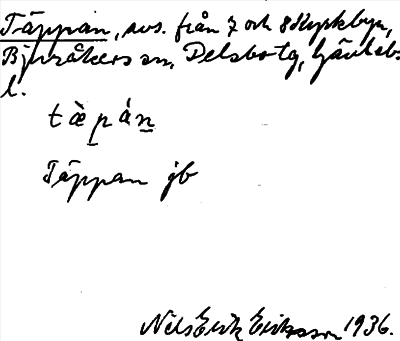 Täppan, avs. från 7 och 8 Kyrkbyn,
Bjuråkers sn, Delsbo tg, Gävlebs
l.
tæ̀pán
Täppan jb
Nils Erik Eriksson 1936.